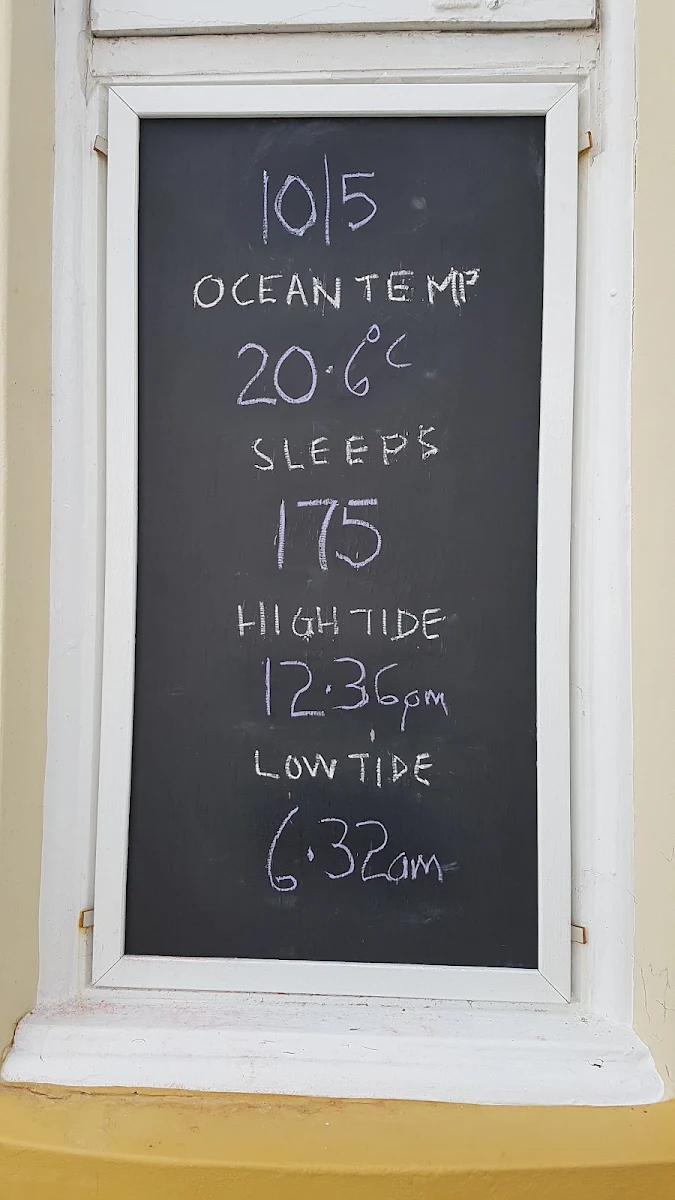 10/5
OCEAN TEMP
20.6°C
SLEEPS
175
HIGH TIDE
12.36pm
LOW TIDE
6.32am